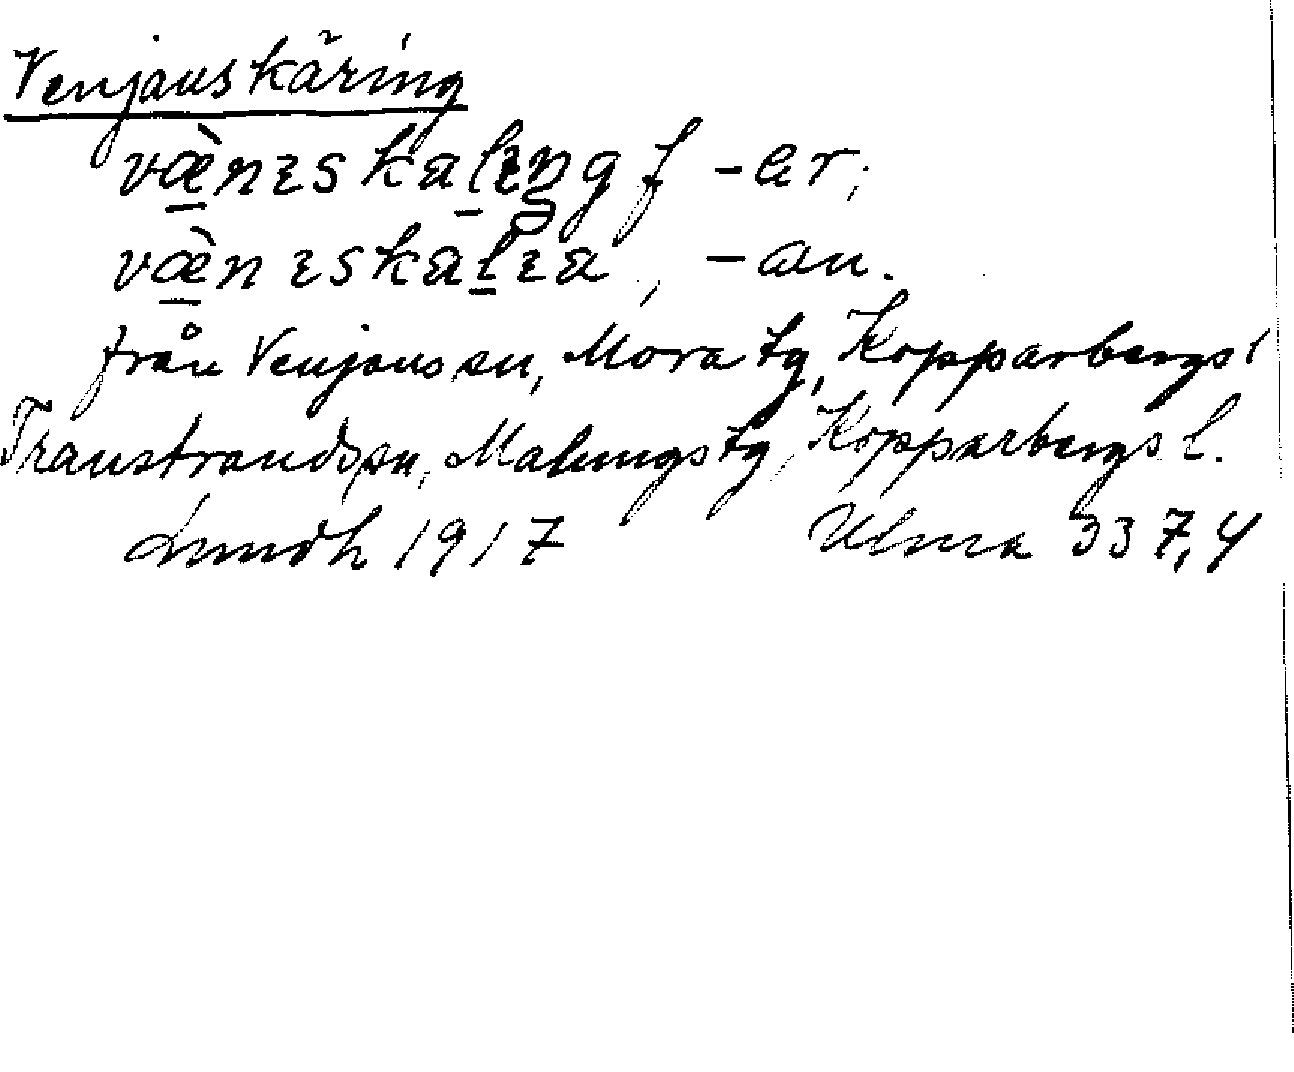 Venjanskäring
væ̀nɛskalɛŋg f -ar;
væ̀nɛskalɛa, -an.
från Venjans sn, Mora tg, Kopparbergs l
Transtrands sn, Malungs tg, Kopparbergs l.
Lundh 1917 Ulma 337,4